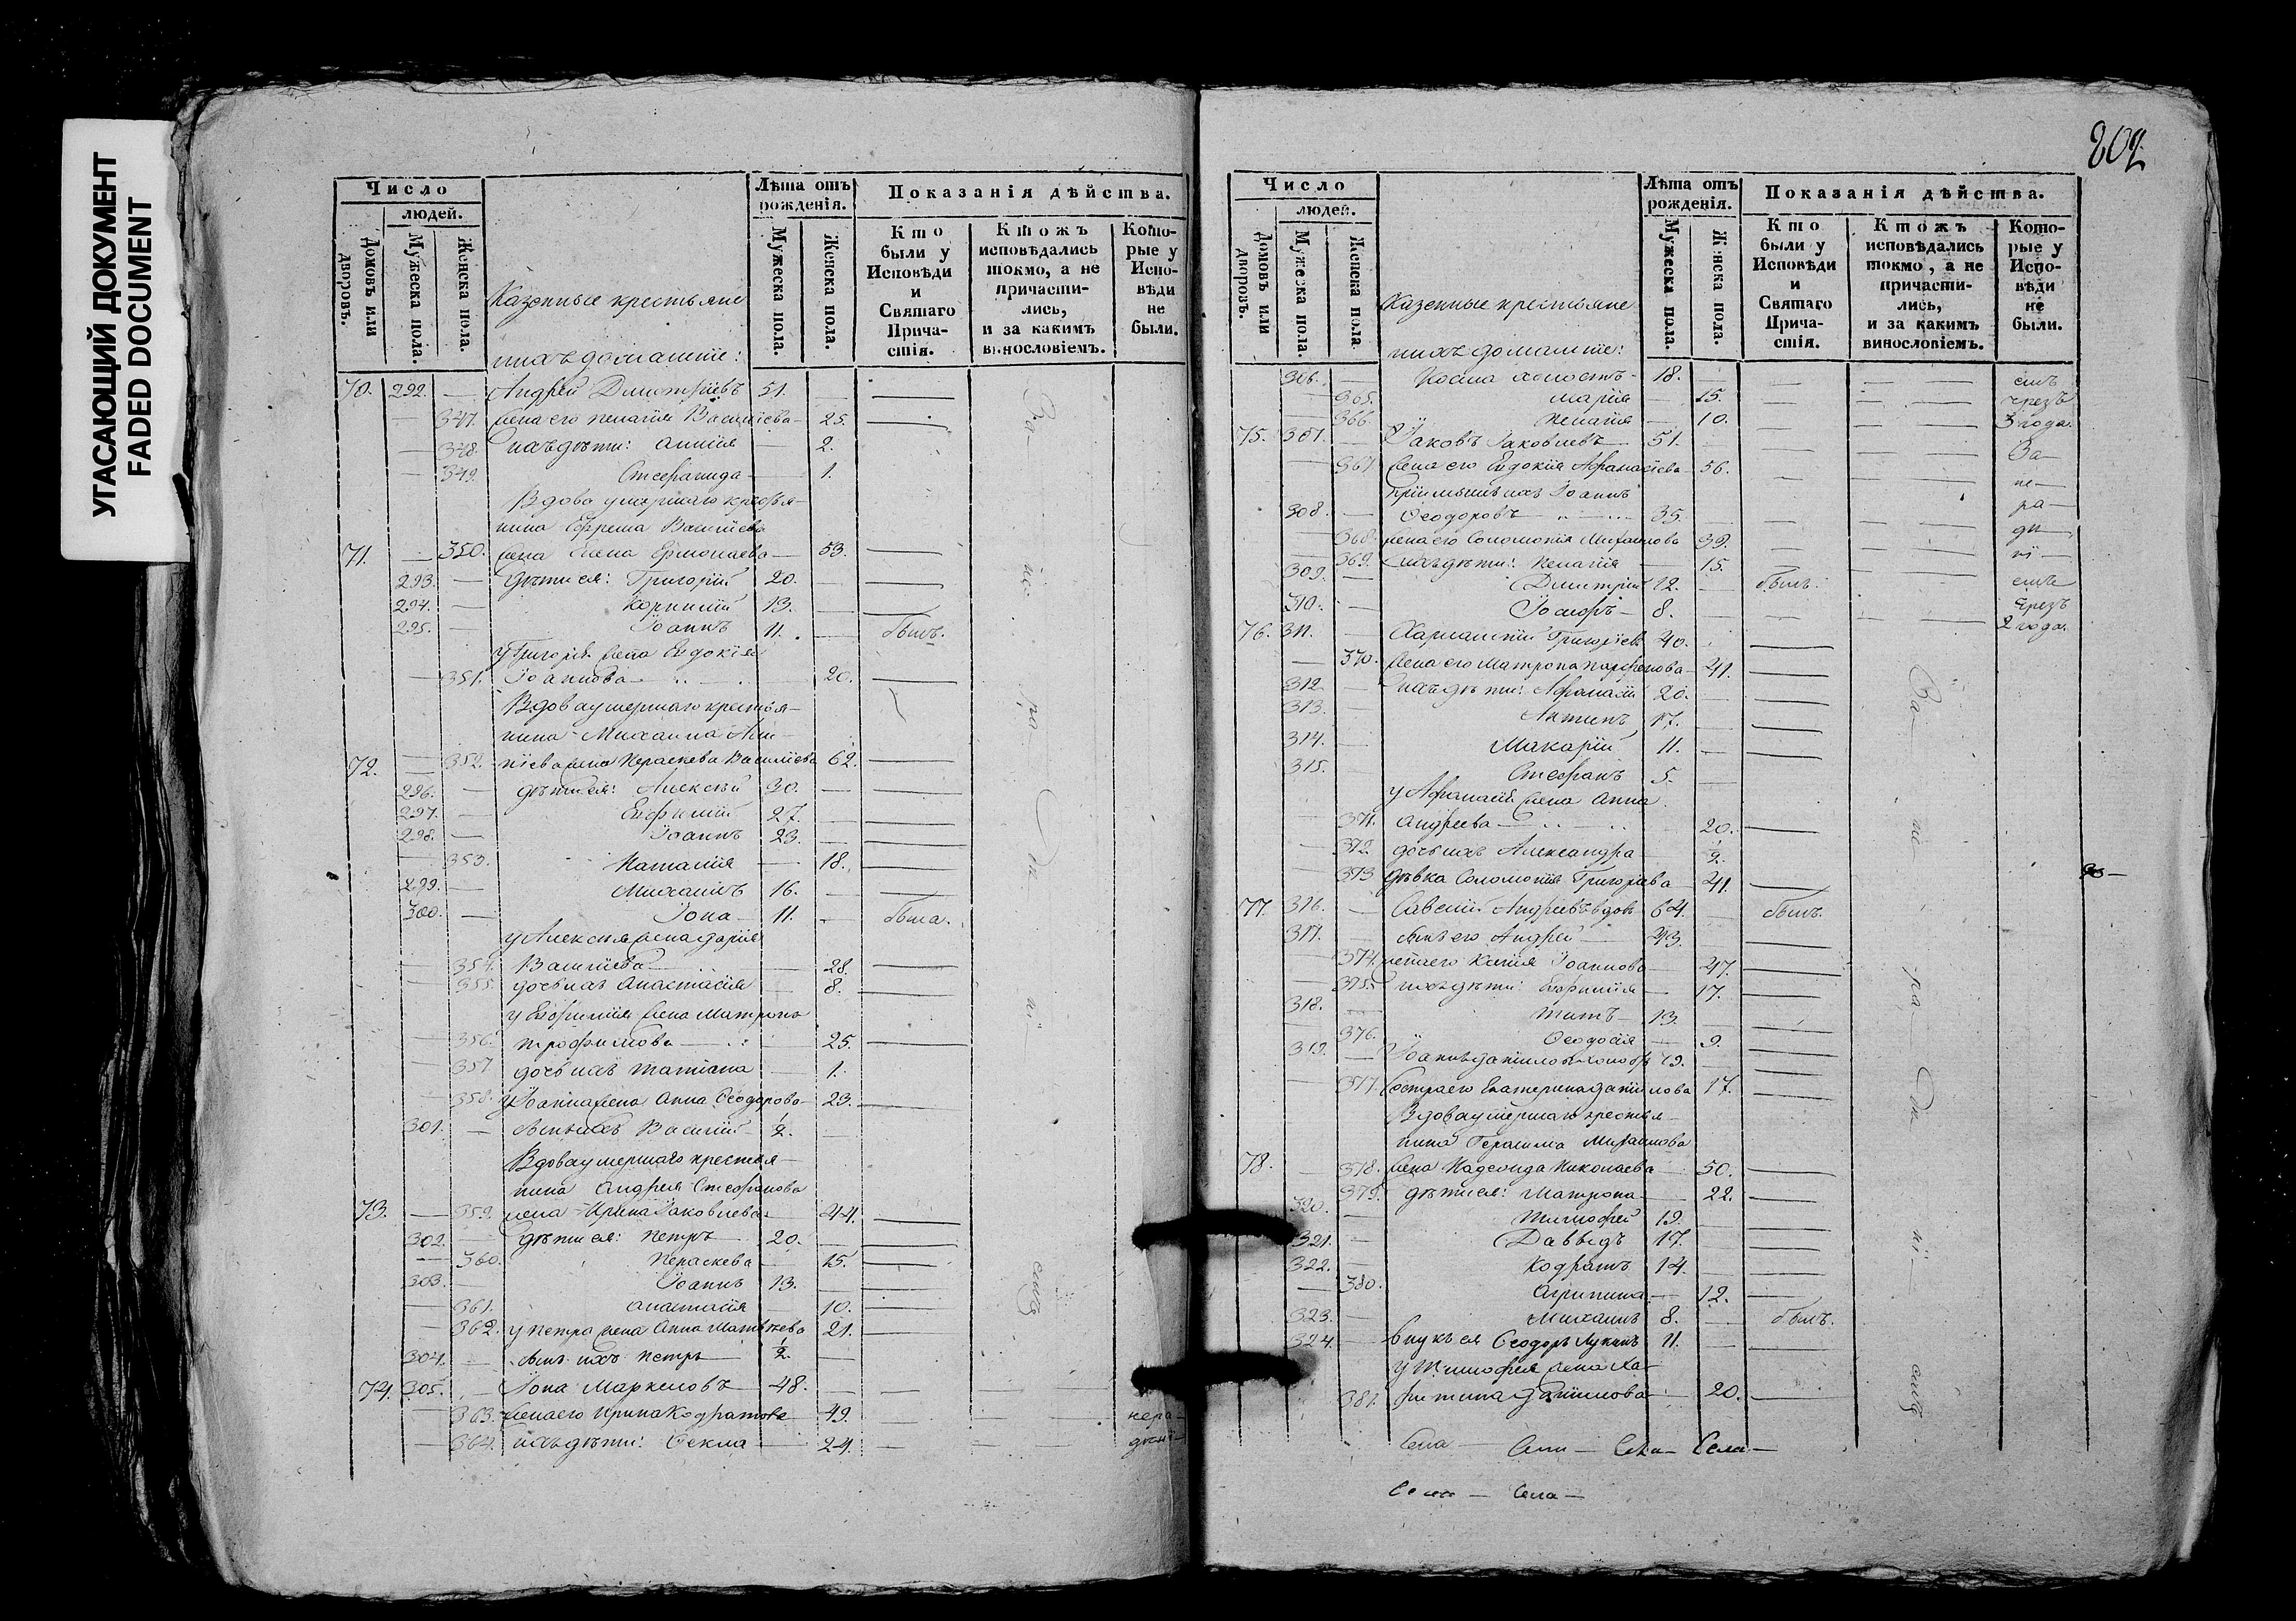 УГАСАЮЩИЙ ДОКУМЕНТ
FADED DOCUMENT
Число
людей.
Домовъ или дворовъ.
Мужеска пола.
Женска пола.
Казенные крестьяне
и ихъ домашніе:
Лѣта отъ рожденія.
Мужеска пола.
Женска пола.
Показанія дѣйства.
Кто были у Исповѣди и Святаго Прича-стія.
Ктожъ исповѣдались токмо, а не причасти-лись, и за какимъ винословіемъ.
Кото-рые у Испо-вѣди не были.
70. 292. — Андрей Димитріевъ 51. —
— 347. жена его Пелагія Василіева — 25. —
— 348. ихъ дѣти: Аннія — 2.
— 349. Стефанида — 1.
Вдова умершаго крестья-
нина Ефрема Василіева
71. — 350. жена Елена Ермолаева — 53. —
293. — дѣти ея: Григорій 20. —
294. — Корнилій 13. —
295. — Іоаннъ 11. — былъ.
у Григорія жена Евдокія
— 351. Іоаннова — 20. —
Вдова умершаго крестья-
нина Михаила Ани-
72. — 352. кіева жена Параскева Василіева 62. —
296. — дѣти ея: Алексѣй 30. —
297. — Евфимій 27. —
298. — Іоаннъ 23. —
— 353. Наталія — 18. —
299. — Михаилъ 16. —
300. — Іона — 11. — была.
у Алексѣя жена Дарія
— 354. Василіева — 28. —
— 355. дочь ихъ Анастасія 8. —
у Евфимія жена Матрона
— 356. Трофимова — 25. —
— 357. дочь ихъ Татіана — 1.
— 358. у Іоанна жена Анна Ѳеодорова — 23. —
301. — сынъ ихъ Василій — ½. —
Вдова умершаго крестья-
нина Андрея Стефанова
73. — 359. жена Ирина Іаковлева — 44. —
302. — дѣти ея: Петръ 20. —
— 360. Параскева — 15. —
303. — Іоаннъ 13. —
— 361. Анастасія — 10. —
— 362. у Петра жена Анна Матвѣева 21. —
304. — сынъ ихъ Петръ ½. —
74. 305. — Іона Маркеловъ 48. —
— 363. жена его Ирина Кодратова 49. — нера-
— 364. ихъ дѣти: Ѳекла — 24. — дѣні-
За — не — ра — дѣ — ні — емъ
202
Число
людей.
Домовъ или дворовъ.
Мужеска пола.
Женска пола.
Казенные крестьяне
и ихъ домашніе:
Лѣта отъ рожденія.
Мужеска пола.
Женска пола.
Показанія дѣйства.
Кто были у Исповѣди и Святаго Прича-стія.
Ктожъ исповѣдались токмо, а не причасти-лись, и за какимъ винословіемъ.
Кото-рые у Испо-вѣди не были.
306. — Косма холостъ 18. — емъ
— 365. Марія — 15. чрезъ
— 366. Пелагія — 10. 3 года.
75. 307. — Іаковъ Іаковлевъ 51. — За —
— 367. жена его Евдокія Аѳанасіева 56. не —
Пріимышъ ихъ Іоаннъ
308. — Ѳеодоровъ — 35. ра —
— 368. жена его Соломонія Михаилова 39. дѣ —
— 369. ихъ дѣти: Пелагія — 15. ні —
309. — Димитрій 12. — былъ. емъ
310. — Іосифъ — 8. чрезъ
76. 311. — Харлампій Григоріевъ 40. 2 года.
— 370. жена его Матрона Парфенова — 41. —
312. — ихъ дѣти: Аѳанасій 20. —
313. — Антипъ 17. —
314. — Макарій 11. —
315. — Стефанъ 5. —
у Аѳанасія жена Анна
— 371. Андреева — 20. —
— 372. дочь ихъ Александра ½.
— 373. дѣвка Соломонія Григоріева 41. —
77. 316. — Савелій Андреевъ вдовъ 64. — былъ.
317. — сынъ его Андрей — 43. —
— 374. жена его Ксенія Іоаннова — 47. —
— 375. ихъ дѣти: Евфимія — 17. —
318. — Титъ — 13. —
— 376. Ѳеодосія — 9. —
319. — Іоаннъ Даниловъ 19. —
— 377. Сестра его Екатерина Данилова 17. —
Вдова умершаго крестья-
нина Герасима Михаилова
78. — 378. жена Надежда Николаева 50. —
— 379. дѣти ея: Матрона — 22. —
320. — Тимоѳей 19. —
321. — Давыдъ 17. —
322. — Кодратъ 14. —
— 380. Агрипина — 12. —
323. — Михаилъ 8. — былъ.
324. — внукъ ея Ѳеодоръ Лукинъ 11. —
у Тимоѳея жена Ха-
— 381. ритина Данилова — 20. —
За — не — ра — дѣ — ні — емъ
Села — Села — Села —
Села — Села —